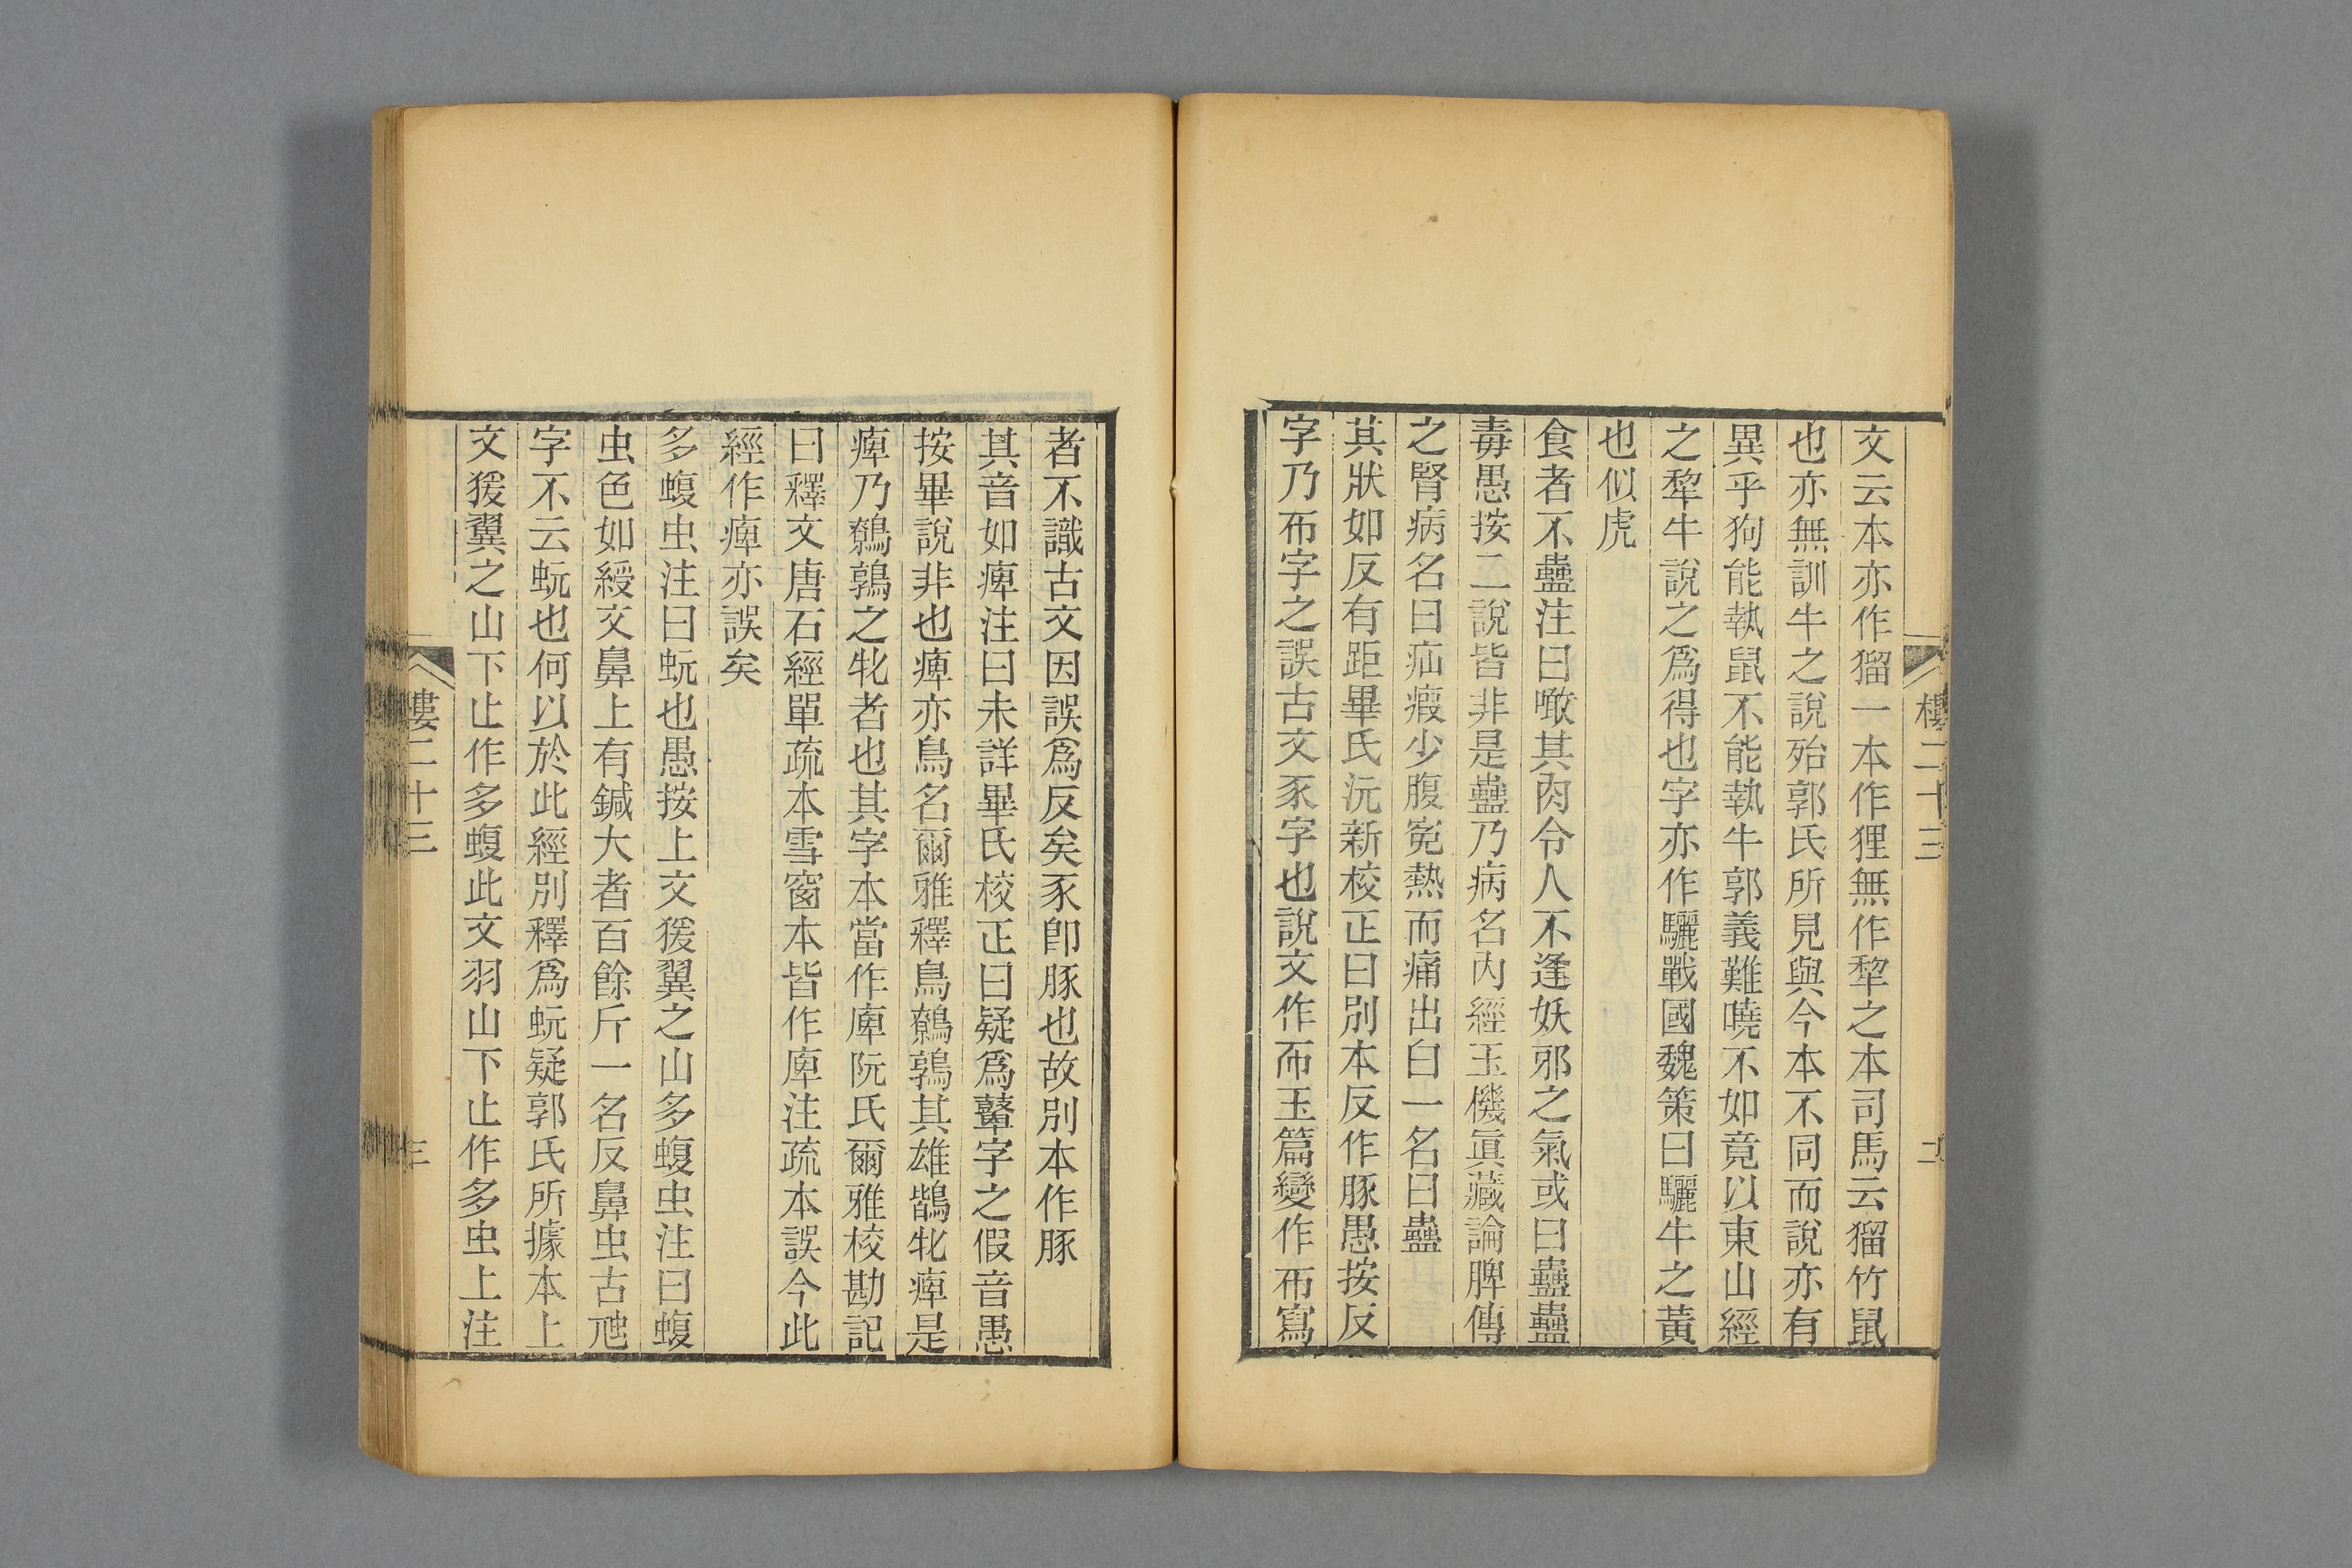 文云本亦作猫一本作狸無作犂之本司馬云猫竹鼠
也亦無訓牛之說殆郭氏所見與今本不同而說亦有
異乎狗能執鼠不能執牛郭義難曉不如竟以東山經
之犂牛說之爲得也字亦作驪戰國魏策曰驪牛之黃
也似虎
食者不蠱注曰噉其肉令人不逢妖邪之氣或曰蠱蠱
毒愚按二說皆非是蠱乃病名內經玉機眞藏論脾傳
之腎病名曰疝瘕少腹寃熱而痛出白一名曰蠱
其狀如反有距畢氏沅新校正曰別本反作豚愚按反
字乃㒸字之誤古文豕字也說文作㒸玉篇變作㒸寫
者不識古文因誤爲反矣豕卽豚也故別本作豚
其音如痺注曰未詳畢氏校正曰疑爲鼙字之假音愚
按畢說非也痺亦鳥名爾雅釋鳥鷯鶉其雄鶛牝痺是
痺乃鷯鶉之牝者也其字本當作庳阮氏爾雅校勘記
曰釋文唐石經單疏本雪窗本皆作庳注疏本誤今此
經作痺亦誤矣
多蝮虫注曰蚖也愚按上文猨翼之山多蝮虫注曰蝮
虫色如綬文鼻上有鍼大者百餘斤一名反鼻虫古虺
字不云蚖也何以於此經別釋爲蚖疑郭氏所據本上
文猨翼之山下止作多蝮此文羽山下止作多虫上注
樓二十三
二
樓二十三
三